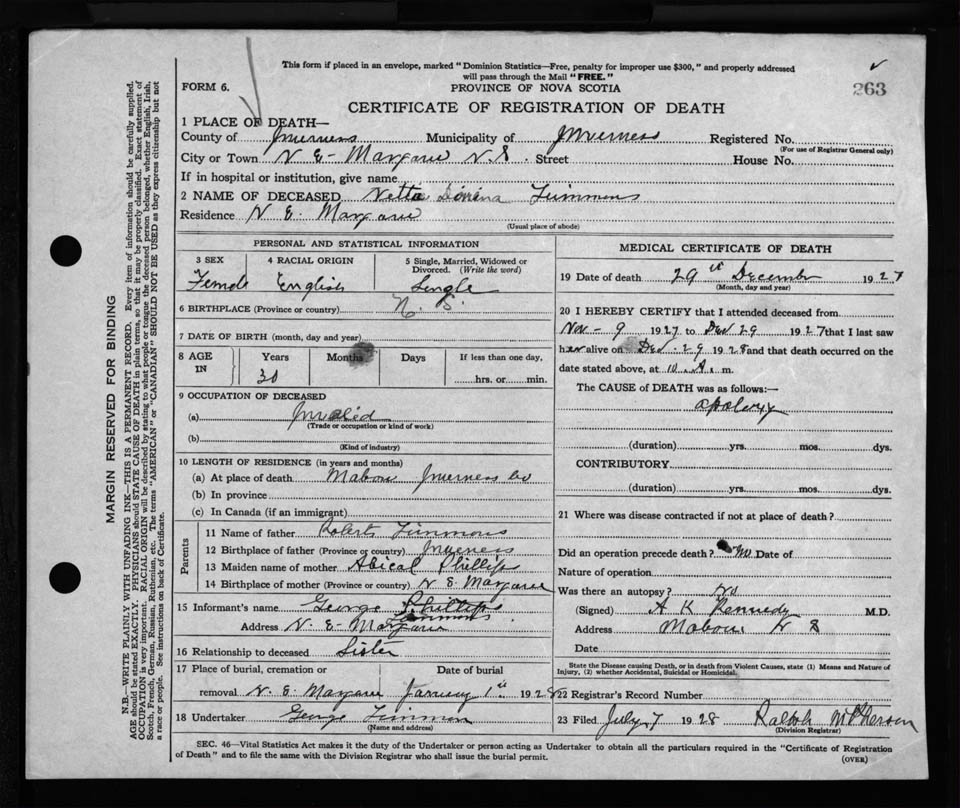 This form if placed in an envelope, marked "Dominion Statistics—Free, penalty for improper use $300," and properly addressed
will pass through the Mail "FREE."
FORM 6.
PROVINCE OF NOVA SCOTIA
263
CERTIFICATE OF REGISTRATION OF DEATH
1 PLACE OF DEATH—
County of Inverness Municipality of Inverness Registered No.
(For use of Registrar General only)
City or Town N E- Margaree N.S. Street House No.
If in hospital or institution, give name
2 NAME OF DECEASED Netta Timmons
Residence N E. Margaree
(Usual place of abode)
PERSONAL AND STATISTICAL INFORMATION
3 SEX 4 RACIAL ORIGIN 5 Single, Married, Widowed or Divorced. (Write the word)
Female English Single
6 BIRTHPLACE (Province or country) N. S.
7 DATE OF BIRTH (month, day and year)
8 AGE IN Years Months Days If less than one day,
30 hrs. or min.
9 OCCUPATION OF DECEASED
(a) Invalid
(Trade or occupation or kind of work)
(b)
(Kind of industry)
10 LENGTH OF RESIDENCE (in years and months)
(a) At place of death Mabou Inverness Co
(b) In province
(c) In Canada (if an immigrant)
Parents
11 Name of father Robert Timmons
12 Birthplace of father (Province or country) Inverness
13 Maiden name of mother Abical Phillips
14 Birthplace of mother (Province or country) N E. Margaree
15 Informant's name George Phillips
Timmons
Address N. E- Margaree
16 Relationship to deceased Sister
17 Place of burial, cremation or Date of burial
removal N. E. Margaree January 1st 1928
18 Undertaker George Timmons
(Name and address)
MEDICAL CERTIFICATE OF DEATH
19 Date of death 29th December 1927
(Month, day and year)
20 I HEREBY CERTIFY that I attended deceased from
Nov - 9 1927 to Dec 29 1927 that I last saw
her alive on Dec. 29 1928 and that death occurred on the
date stated above, at 10 A. m.
The CAUSE of DEATH was as follows:—
apolexy
(duration) yrs. mos. dys.
CONTRIBUTORY
(duration) yrs. mos. dys.
21 Where was disease contracted if not at place of death?
Did an operation precede death? No Date of
Nature of operation
Was there an autopsy? no
(Signed) A K Kennedy M.D.
Address Mabou N S
Date
State the Disease causing Death, or in death from Violent Causes, state (1) Means and Nature of
Injury, (2) whether Accidental, Suicidal or Homicidal.
22 Registrar's Record Number
23 Filed July 7 1928 Ralph McPherson
(Division Registrar)
SEC. 46—Vital Statistics Act makes it the duty of the Undertaker or person acting as Undertaker to obtain all the particulars required in the "Certificate of Registration
of Death" and to file the same with the Division Registrar who shall issue the burial permit.
(OVER)
MARGIN RESERVED FOR BINDING
N.B.—WRITE PLAINLY WITH UNFADING INK—THIS IS A PERMANENT RECORD. Every item of information should be carefully supplied.
AGE should be stated EXACTLY. PHYSICIANS should STATE CAUSE OF DEATH in plain terms, so that it may be properly classified. Exact statement of
OCCUPATION is very important. RACIAL ORIGIN will be described by stating to what people or tongue the deceased person belonged, whether English, Irish,
Scotch, French, German, Russian, Ruthenian, etc. The terms "AMERICAN" or "CANADIAN" SHOULD NOT BE USED as they express citizenship but not
a race or people. See instructions on back of Certificate.